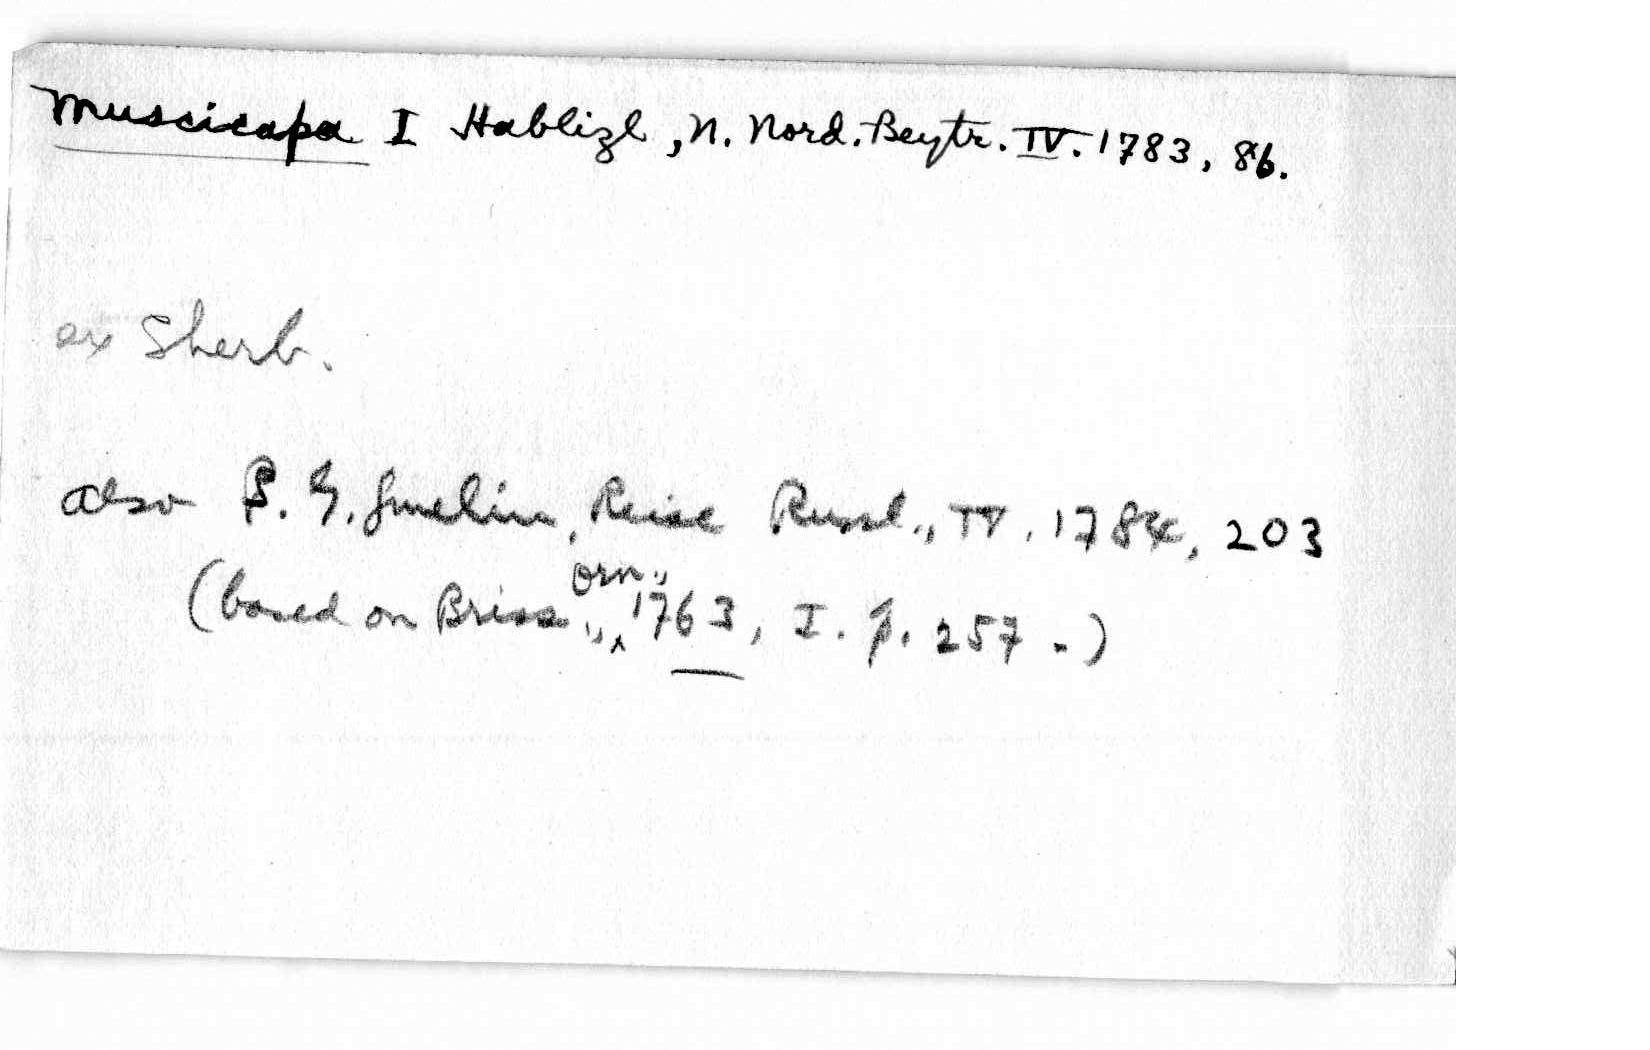 Muscicapa I Hablizl, N. Nord. Beytr. IV. 1783, 86.
ex Sherb.
also S. G. Gmelin, Reise Russl., IV. 1784, 203
(based on Briss., Orn., 1763, I. p. 257.)